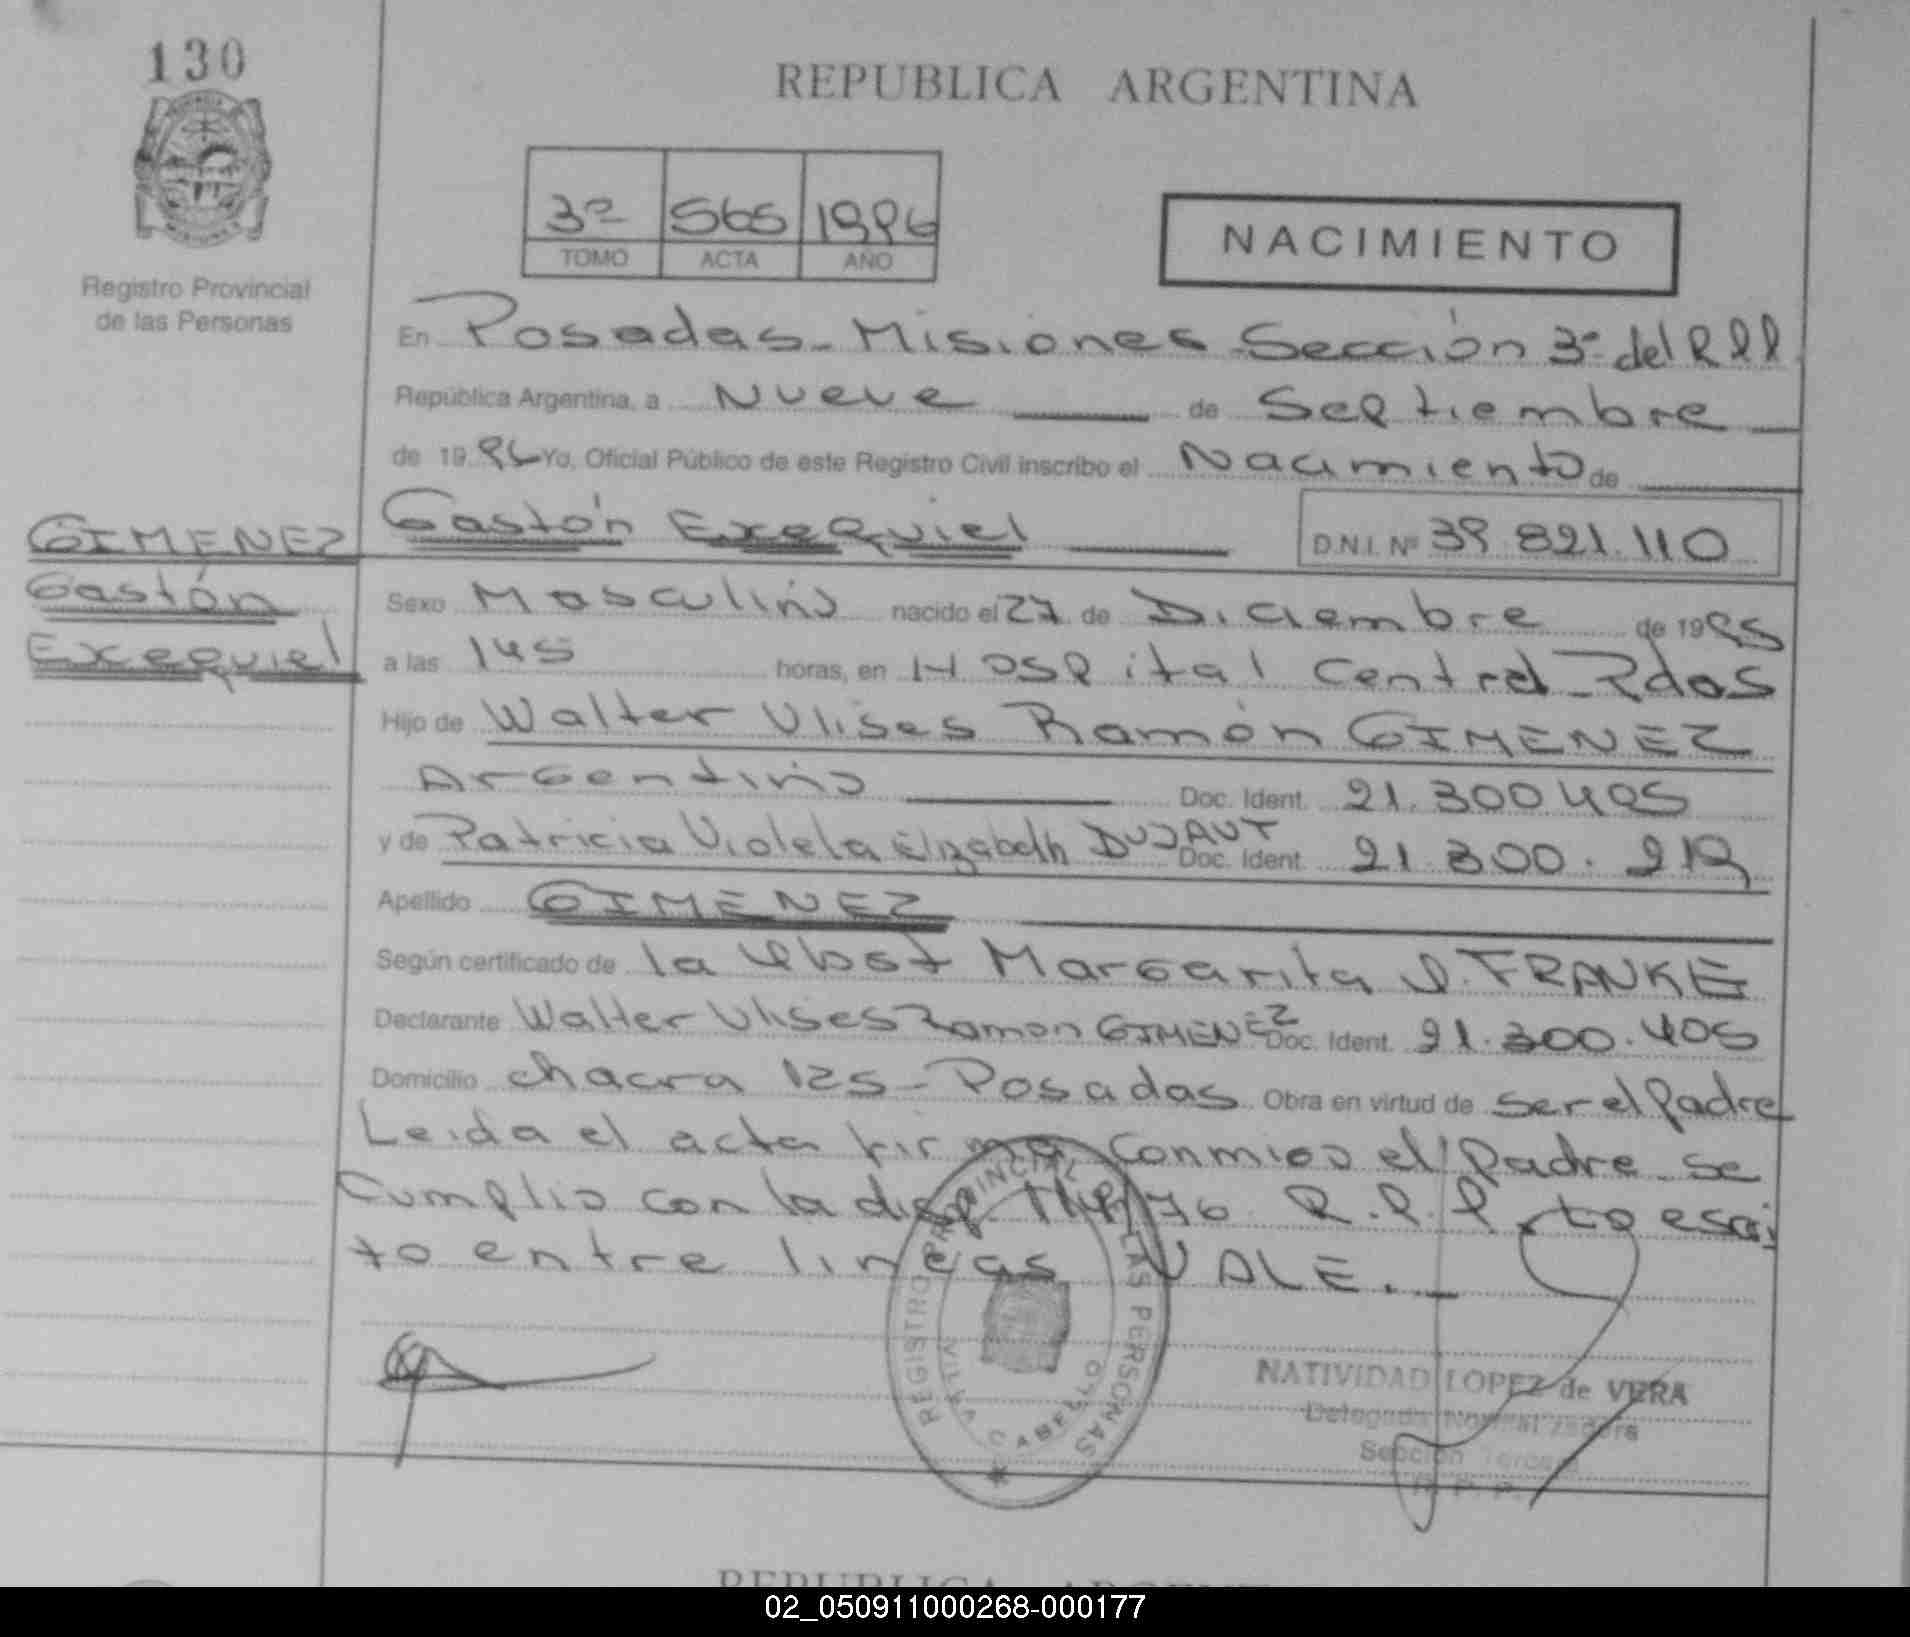 130
REPUBLICA ARGENTINA
3º 565 1996
TOMO ACTA AÑO
NACIMIENTO
Registro Provincial
de las Personas
En Posadas - Misiones - Sección 3º del R P P
República Argentina, a Nueve de Septiembre
de 19 96 Yo, Oficial Público de este Registro Civil inscribo el Nacimiento de
GIMENEZ
Gastón
Exequiel
Gastón Exequiel D.N.I. Nº 39.821.110
Sexo Masculino nacido el 27 de Diciembre de 1995
a las 145 horas, en Hospital Central - Pdas
Hijo de Walter Ulises Ramón GIMENEZ
Argentino Doc. Ident. 21.300.405
y de Patricia Violeta Elizabeth DUJAUT Doc. Ident. 21.300.219
Apellido GIMENEZ
Según certificado de la Obst Margarita FRANKE
Declarante Walter Ulises Ramon GIMENEZ Doc. Ident. 21.300.405
Domicilio chacra 125 - Posadas Obra en virtud de ser el padre
Leida el acta firma conmigo el padre se
cumplio con la disp. R.P.P. to escri
to entre lineas VALE.
REGISTRO PROVINCIAL LAS PERSONAS
VILLA CABELLO
NATIVIDAD LOPEZ de VERA
Delegada Normalizadora
Sección Tercera
R. P. P.
REPUBLICA
02_050911000268-000177